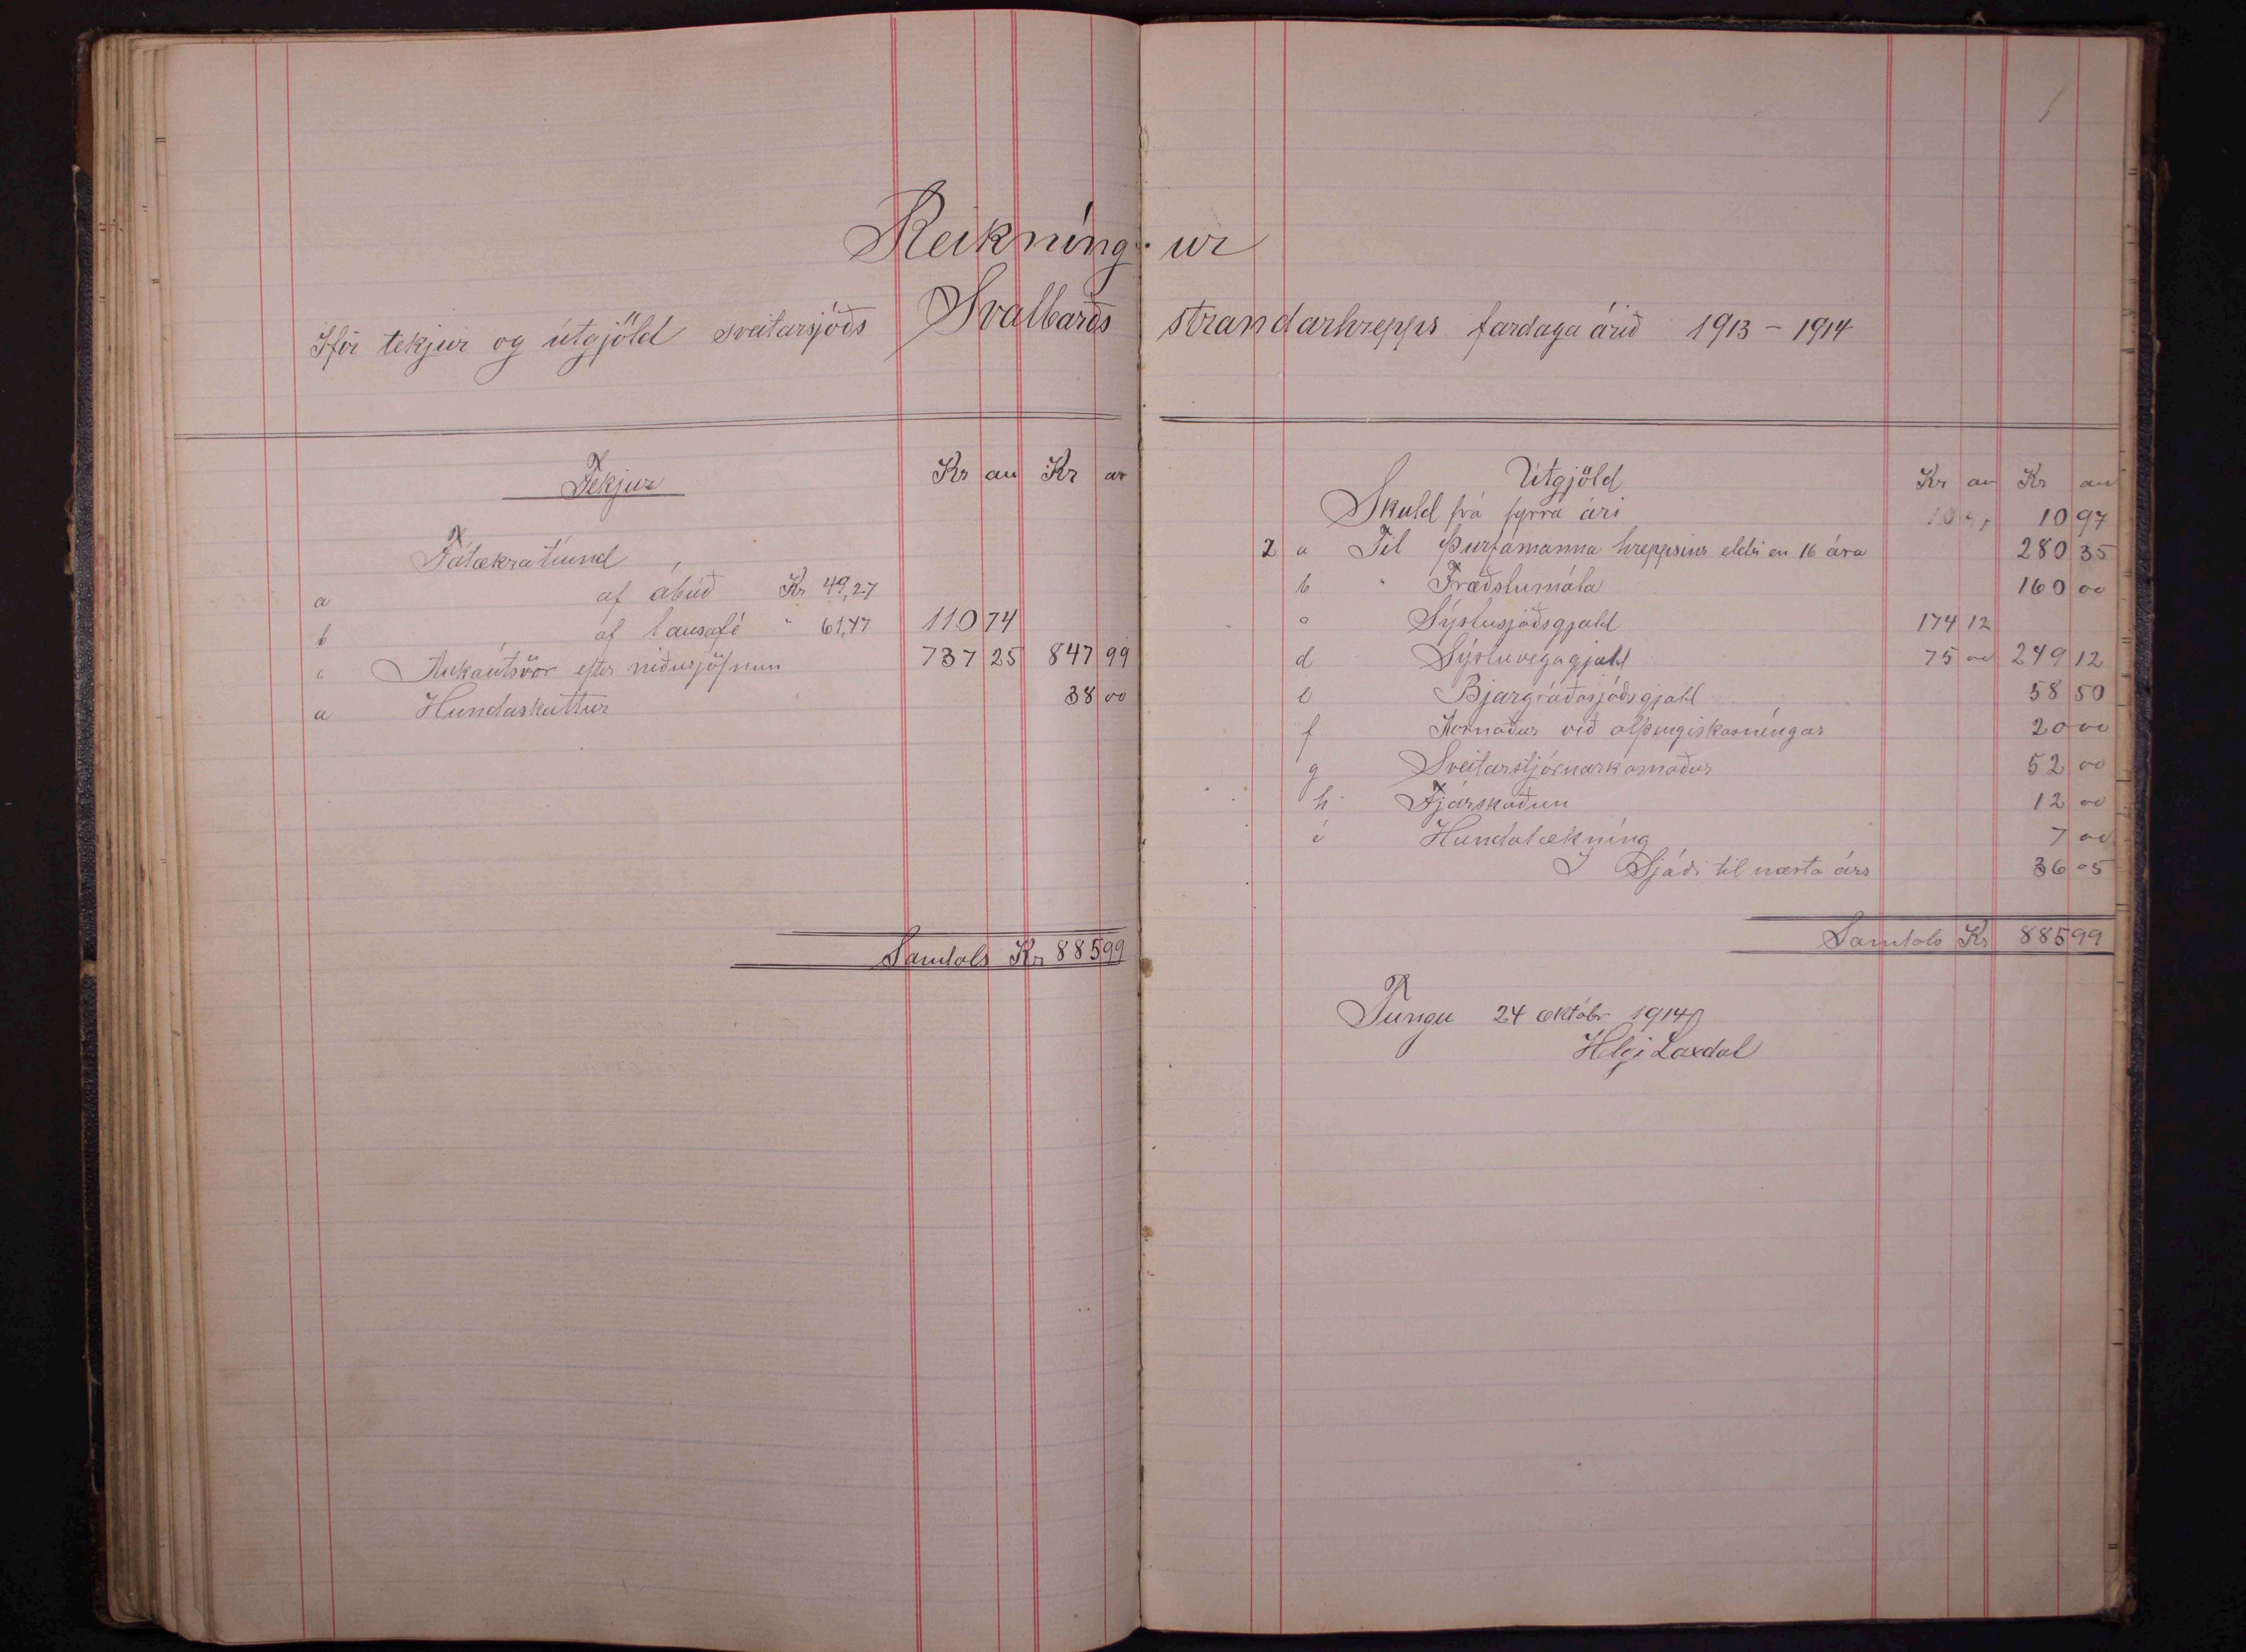 Reikníng.ur
Ifir tekjur og útgjöld sveitarsjóðs Svalbarðsstrandarhrepps fardaga árið 1913 - 1914
Tekjur Kr au Kr ar
Fátækratíund
a af ábúð Kr 49,27
b af lausafé " 61,47 110 74
c Aukaútsvör eftir niðurjöfnun 737 25 847 99
a Hundaskattur 38 00
Samtals Kr 885 99
Útgjöld Kr au Kr au
Skuld frá fyrra ári 10 97
2 a Til Þurfamanna hreppsins eldri en 16 ára 280 35
b " Fræðslumála 160 00
c Sýslusjóðsgjald 174 12
d Sýsluvegagjald 75 00 249 12
e Bjargráðasjóðsgjald 58 50
f Kosnaður við alþingiskosníngar 20 00
g Sveitarstjórnarkosnaður 52 00
h Fjárskoðun 12 00
i Hundalækníng 7 00
I Sjóði til næsta árs 36 05
Samtals Kr 885 99
Tungu 24 október 1914
Helgi Laxdal